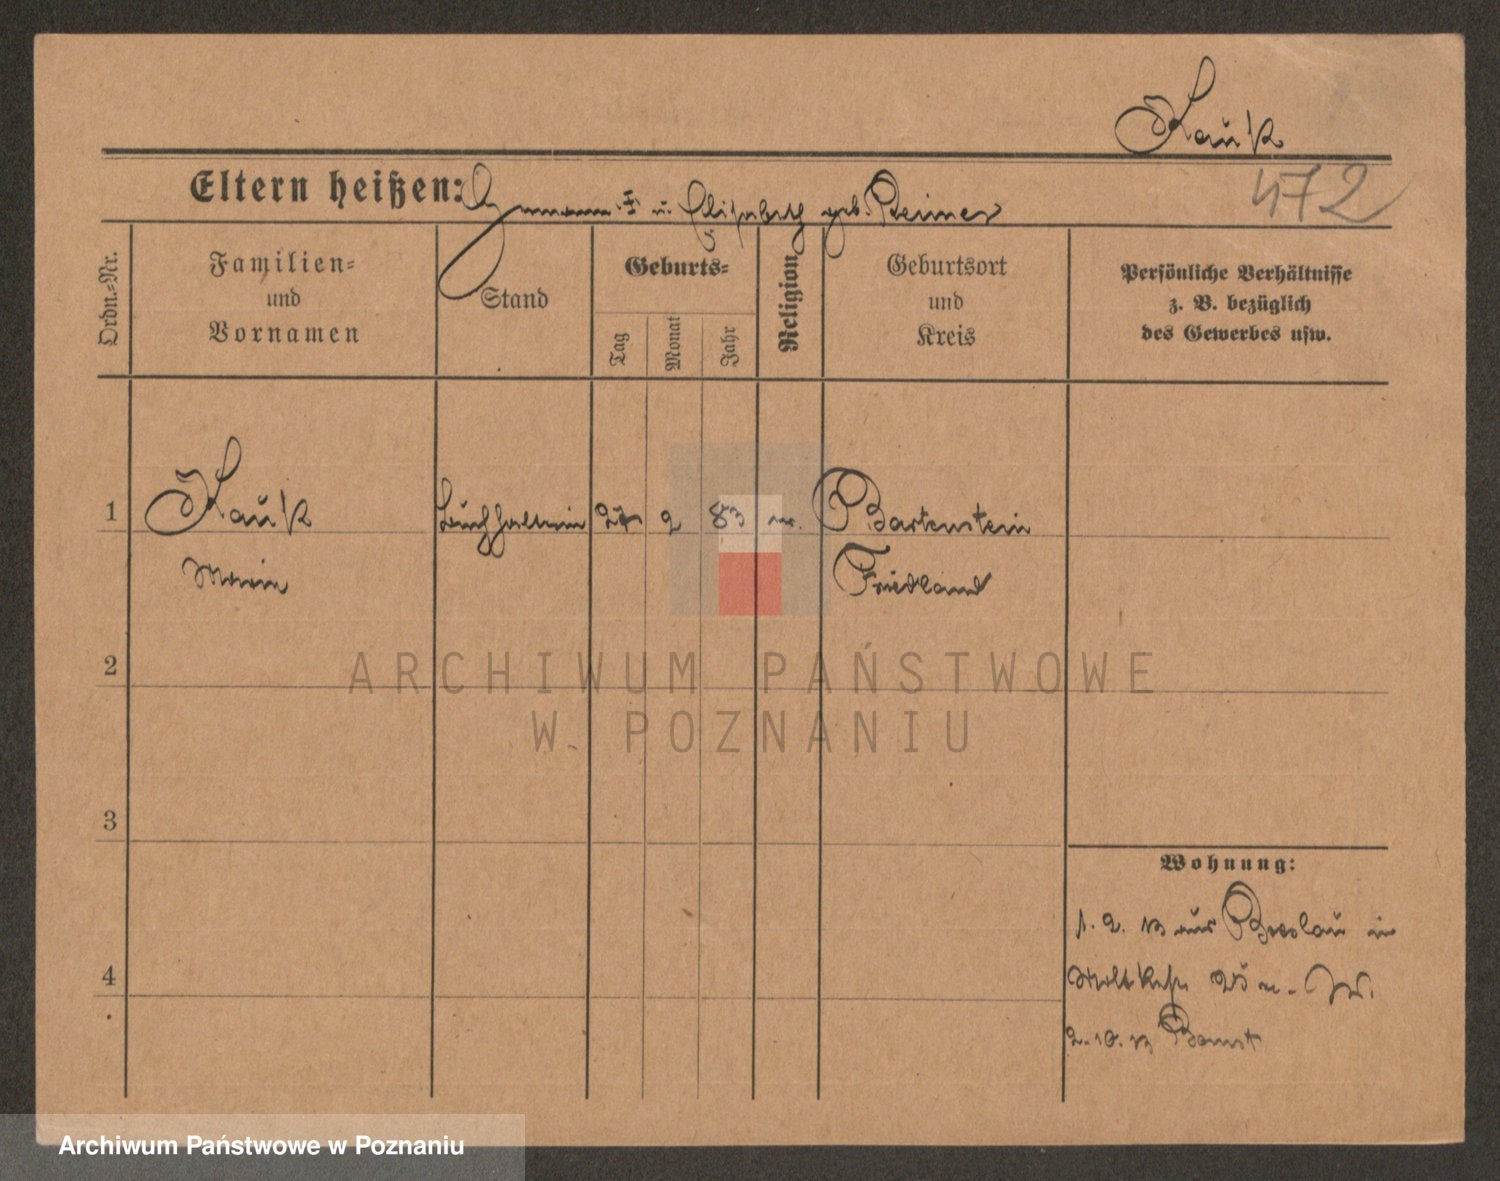 Kauk
Eltern heißen: Hermann † u. Elisabeth geb. Reimer
472
Ordn.-Nr.
Familien-
und
Vornamen
Stand
Geburts-
Tag
Monat
Jahr
Religion
Geburtsort
und
Kreis
Persönliche Verhältnisse
z. B. bezüglich
des Gewerbes usw.
1
Kauk
Buchhalterin
27
2
83
ev.
Bartenstein
Maria
Friedland
2
ARCHIWUM PAŃSTWOWE
W POZNANIU
3
Wohnung:
1. 2. 13 aus Breslau in
Moltkestr. 25
4
2. 10. 13 Bomst
Archiwum Państwowe w Poznaniu